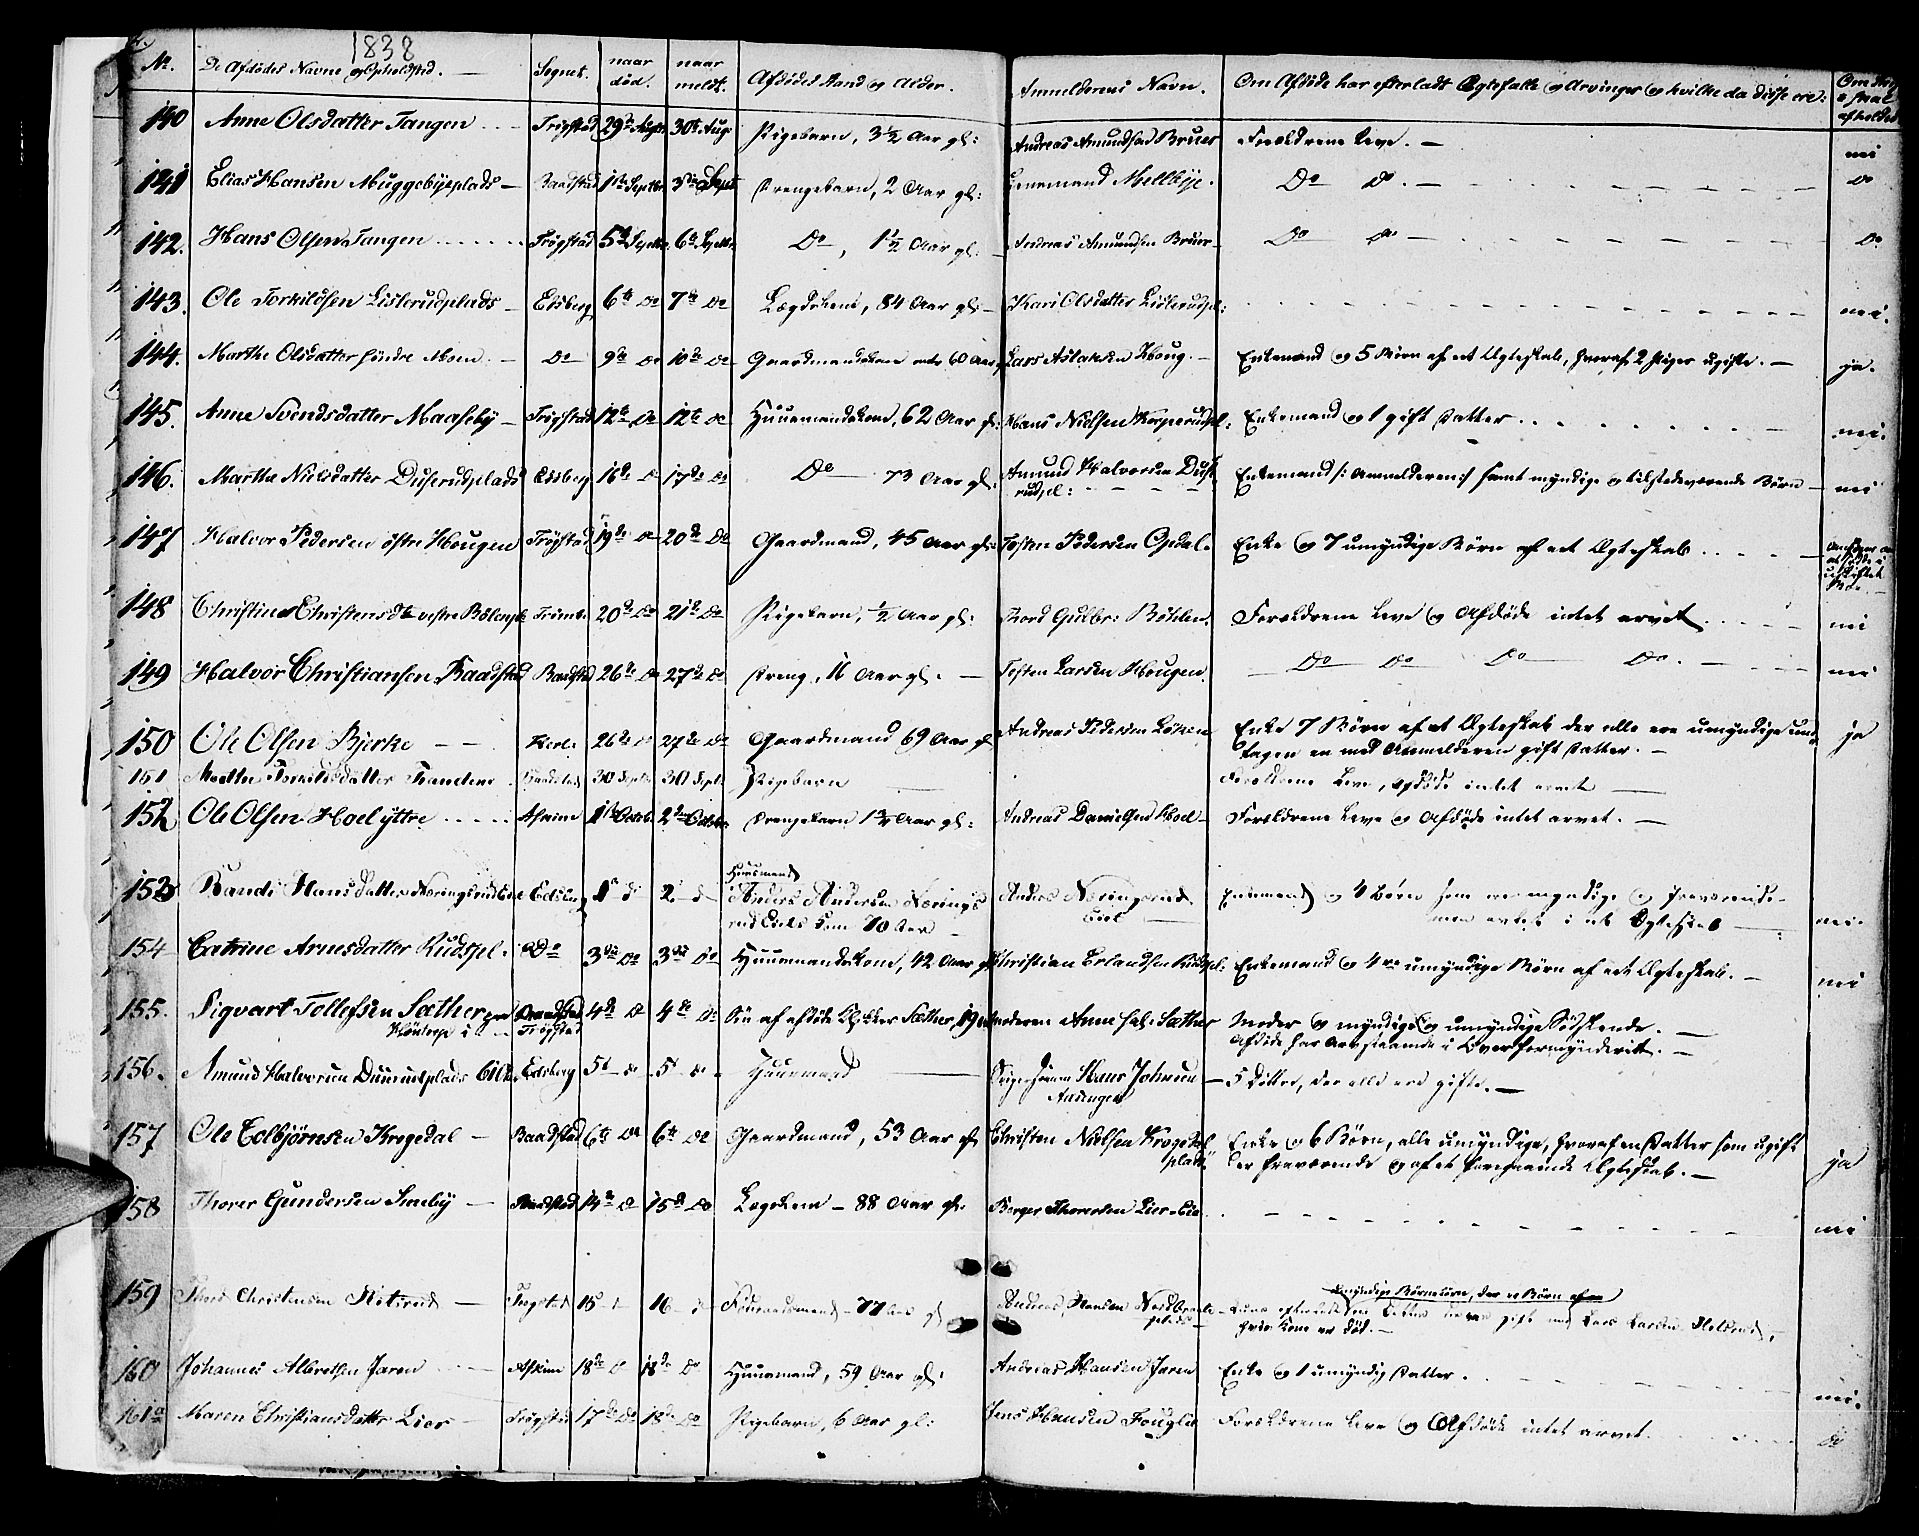 1838
No. De Afdødes Navne og Opholdsted. Sognet. naar død. naar meldt. Afdødes Stand og Alder. Anmelderens Navn. Om Afdøde har efterladt Ægtefælle og Arvinger og hvilke da disse ere:
140 Anne Olsdatter Tangen Trögstad 29de Augst 30te Aug Pigebarn, 3½ Aar gl: Andreas Amundsen Bruer Forældrene leve. nei
141 Elias Hansen Muggebyeplads Baadstad 1ste Septbr 3die Sept Drengebarn, 2 Aar gl: Lensmand Mellbye. Do Do. Do
142. Hans Olsen Tangen Trögstad 5te Septbr 6te Septbr Do, 1½ Aar gl: Andreas Amundsen Bruer Do Do Do
143. Ole Torkildsen Lislerudplads Edsberg 6te Do 7de Do Lægdslem, 84 Aar gl: Kari Olsdatter Lislerudpl: nei.
144. Marthe Olsdatter söndre Moen Do 9de Do 10de Do Gaardmandskone 60 Aar Lars Aslaksen Houg. Enkemand og 5 Börn af eet Ægteskab, hvoraf 2 Piger ugifte. ja.
145. Anne Svendsdatter Maaseby Trögstad 12te Do 12te Do Huusmandskone, 62 Aar gl: Hans Nielsen Enkemand og 1 gift Datter nei.
146. Marthe Nielsdatter Duserudplads Edsberg 16de Do 17de Do Do 73 Aar gl: Amund Halvorsen Duse
rudpl: Enkemand /: Anmelderen :/ samt myndige og tilstedeværende Börn nei
147 Halvor Pedersen östre Hougen Trögstad 19de Do 20de Do Gaardmand, 45 Aar gl: Tosten Pedersen Opdal. Enke og 7 umyndige Börn af eet Ægteskab
148 Christine Christensdt vestre 20de Do 21de Do Pigebarn, ½ Aar gl: Tord Gulbr: Böhlen. Forældrene leve og Afdöde intet arvet nei
149 Halvor Christiansen Baadstad Baadstad 26de Do 27de Do Dreng, 11 Aar gl. Tosten Larsen Hougen. Do Do Do Do. nei
150 Ole Olsen Bjerke 26de Do 27de Do Gaardmand 69 Aar gl Andreas Pedersen Enke 7 Börn af et Ægteskab der alle ere umyndige und
tagen en med Anmelderen gift Datter. ja
151 Baadstad 30 Septb 30 Septb Pigebarn Forældrene leve, Afdöde intet arvet
152 Ole Olsen Hoel yttre Askim 1ste Octob. 2den Octobr. Drengebarn 1½ Aar gl: Andreas Danielsen Hoel Forældrene leve og Afdöde intet arvet.
153 Randi Hansdatter Næringsrud Eie Edsberg 1 d 2 d Huusmand
Anders Andersen Nærings
rud Eies 70 Aar Anders Næringsrud
Eiet Enkemand og 4 Börn som ere myndige og
i et Ægteskab nei.
154 Catrine Arnesdatter Rudspl. Do 3die Do 3die Do Huusmandskone, 42 Aar gl Christian Erlandsen Rudspl: Enkemand og 4re umyndige Börn af eet Ægteskab. nei
155. Sigvart Tollefsen Sæther
i Trögstad 4de Do 4de Do Sön af afdöde Sæther, 19 Moderen Anne Sæther Moder og myndige og umyndige Södskende.
Afdöde har Arv staaende i Overformynderiet.
156. Amund Halvorsen Duserudplads Edsberg 5t do 5 do Huusmand Hans Johnsen 5 Döttre, der alle ere gifte.
157 Ole Colbjörnsen Krogedal Baadstad 6te Do 6te Do Gaardmand, 53 Aar gl Christen Nielsen Krogedal
plads Enke og 6 Börn, alle umyndige, hvoraf en Datter som ugift
er fraværende og af et foregaaende Ægteskab. ja
158 Thorer Gundersen Smeby Baadstad 14de Do 15de Do Lægdslem 88 Aar gl. Borger Thorersen Lier-Eie nei
159 Thord Christensen Trögstad 15 16 77 Aar gl Andreas Hansen
plads umyndige Börnebörn, der ere Börn af en
Datter gift med Lars Larsen
hvis Kone er död.
160 Johannes Albretsen Jaren Askim 18de D 18de Do Huusmand, 59 Aar gl: Andreas Hansen Jaren Enke og 1 umyndig Datter. nei.
161a Maren Christiansdatter Lier Trögstad 17de Do 18de Do Pigebarn, 6 Aar gl: Jens Hansen Fouglie Forældrene leve og Afdöde intet arvet. Do